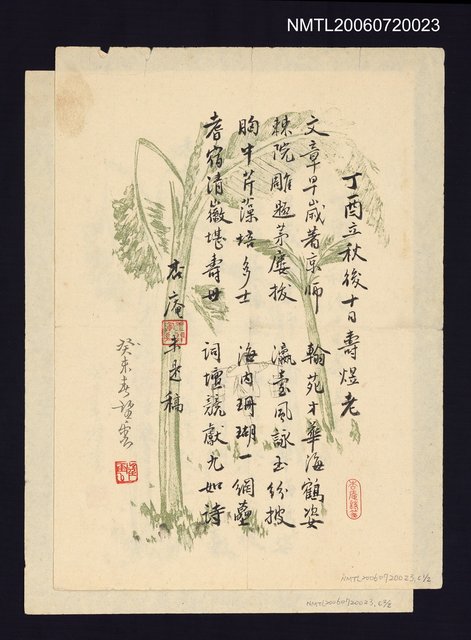 NMTL20060720023
丁酉立秋後十日壽煜老
文章早歲著京師 翰苑才華海鶴姿
棘院雕題茅塵拔 瀛臺風詠玉紛披
胸中芹藻培多士 海內珊瑚一網
耆宿清徽堪壽世 詞壇競獻九如詩
庵未是稿
癸未春
NMTL20060720023,C1/2
NMTL20060720023,C2/2